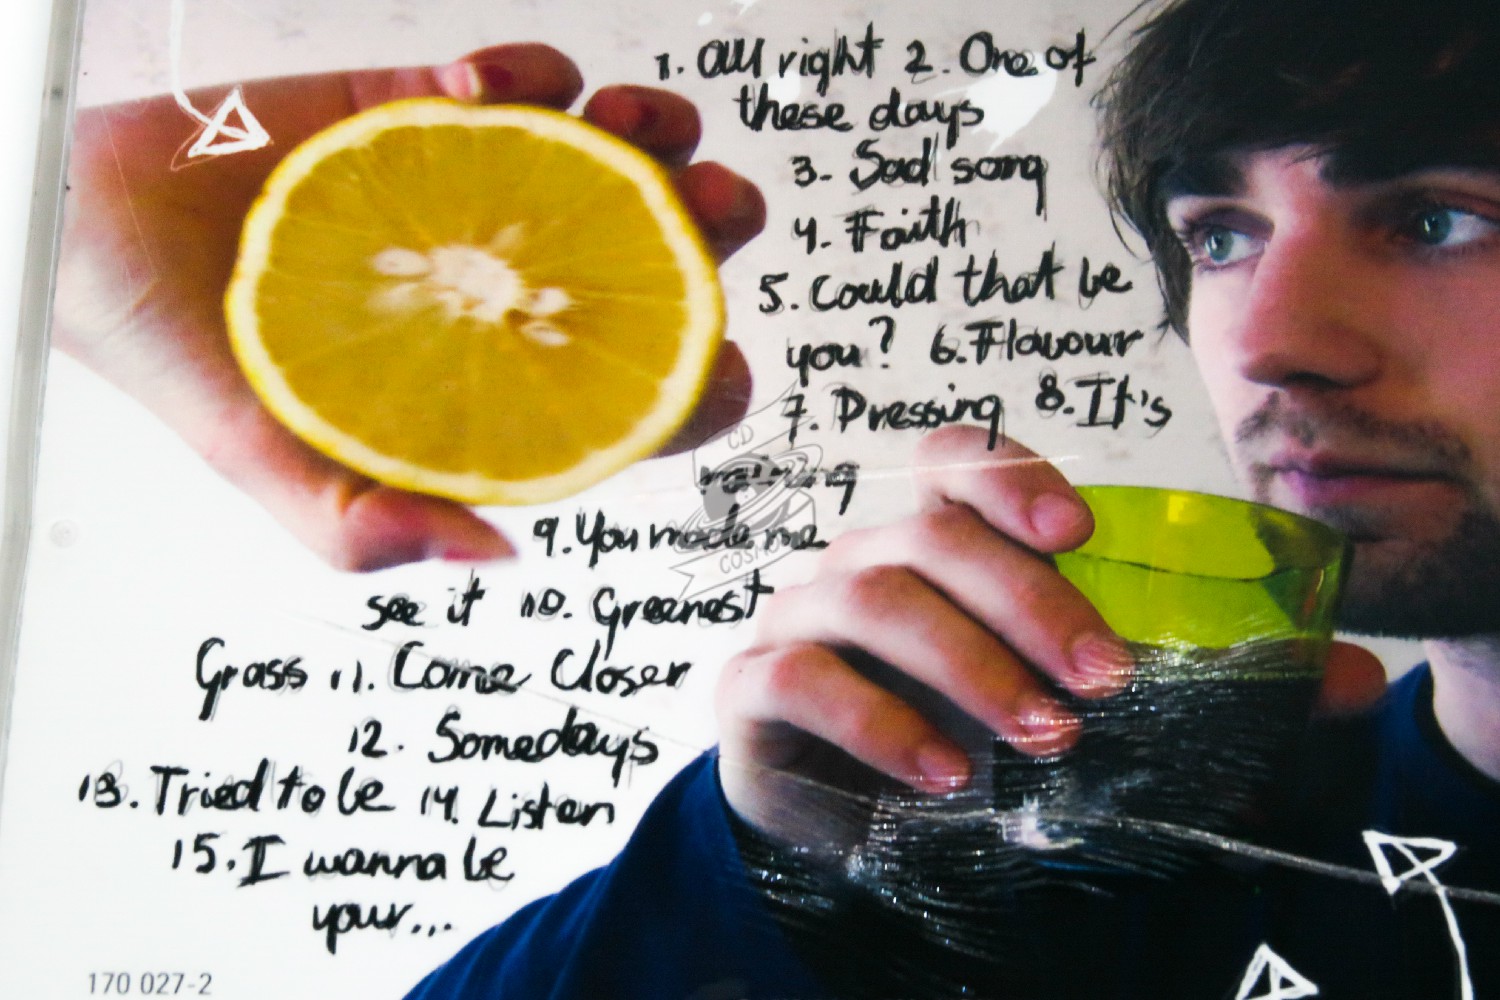 1. All right 2. One of
these days
3. Sad song
4. Faith
5. Could that be
you? 6. Flavour
7. Pressing 8. It's
raining
9. You made me
see it 10. Greenest
Grass 11. Come Closer
12. Somedays
13. Tried to be 14. Listen
15. I wanna be
your...
170 027-2
CD
COSMOS